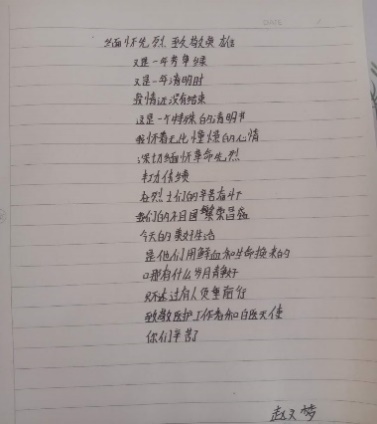 缅怀先烈 致敬英雄
又是一年春草绿
又是一年清明时
疫情还没有结束
这是一个特殊的清明节
我怀着无比憧憬的心情
深切缅怀革命先烈
在烈士们的辛苦奋斗下
我们的祖国繁荣昌盛
今天的美好生活
是他们用鲜血和生命换来的
哪有什么岁月静好
只不过有人负重前行
致敬医护工作者和白衣天使
你们辛苦了
赵文梦